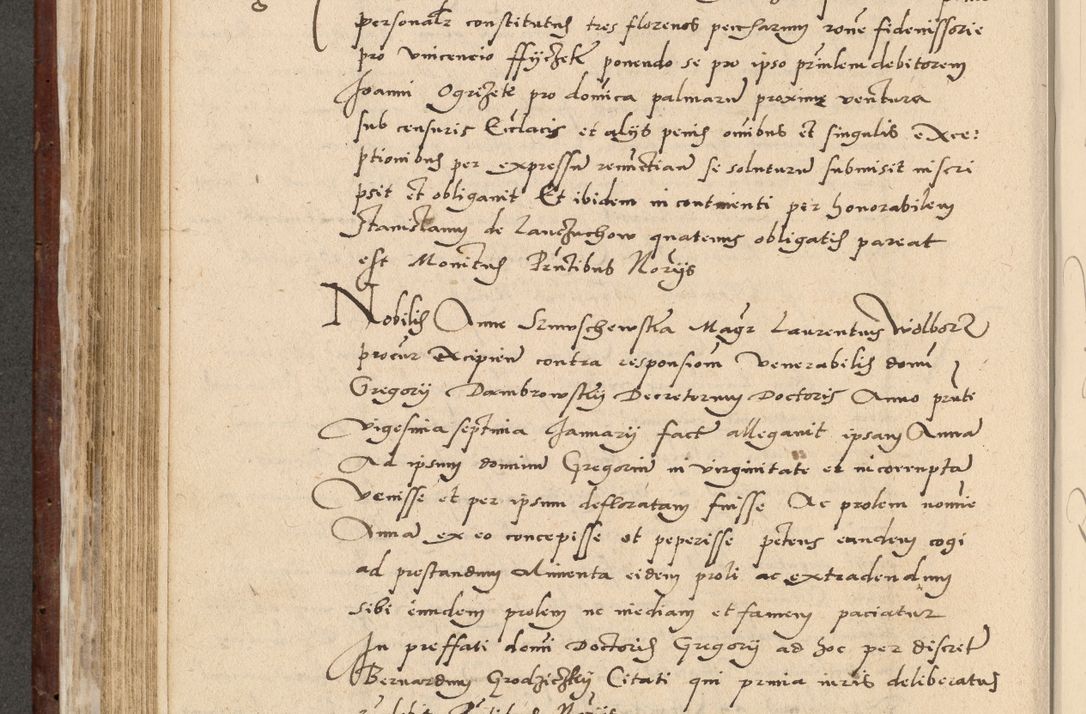 personalr constitutus tres florenos peccharum rone fideiussorie
pro Vincencio ffyczek ponendo se pro ipso prinlem debitorem
Joanni Ogrizek pro donica palmaru proxime ventura
sub censuris Ecclacis et alijs penis oibus et singulis exce:
ptionibus per expressa renuctiane se soluturu submisit inscri
psit et obligauit Et ibidem in continenti per honorabilem
Stanislaum de Lanczuchow quatenus obligatis pareat
est Monitus Pntibus Norijs
Nobilis Anne Magr Laurentius Wolborz
procur Excipien contra responsiom Venerabilis domi
Gregorij Dambrowskij Decretorum Doctoris Anno pnti
vigesima septima Januarij fact allegauit ipsam Anna
Ad ipsum dominu Gregoriu in virginitate et incorrupta
Venisse et per ipsum defloratam fuisse Ac prolem nomie
Anna ex eo concepisse et peperisse petens eundem cogi
ad prestandum alimenta eidem proli ac extradendum
sibi eundem prolem ne inediam et famem paciatur
In preffati domi Doctoris Gregorij ad hoc per discret
Bernardum Grodziczkij Citati qui prmia iuris deliberatus